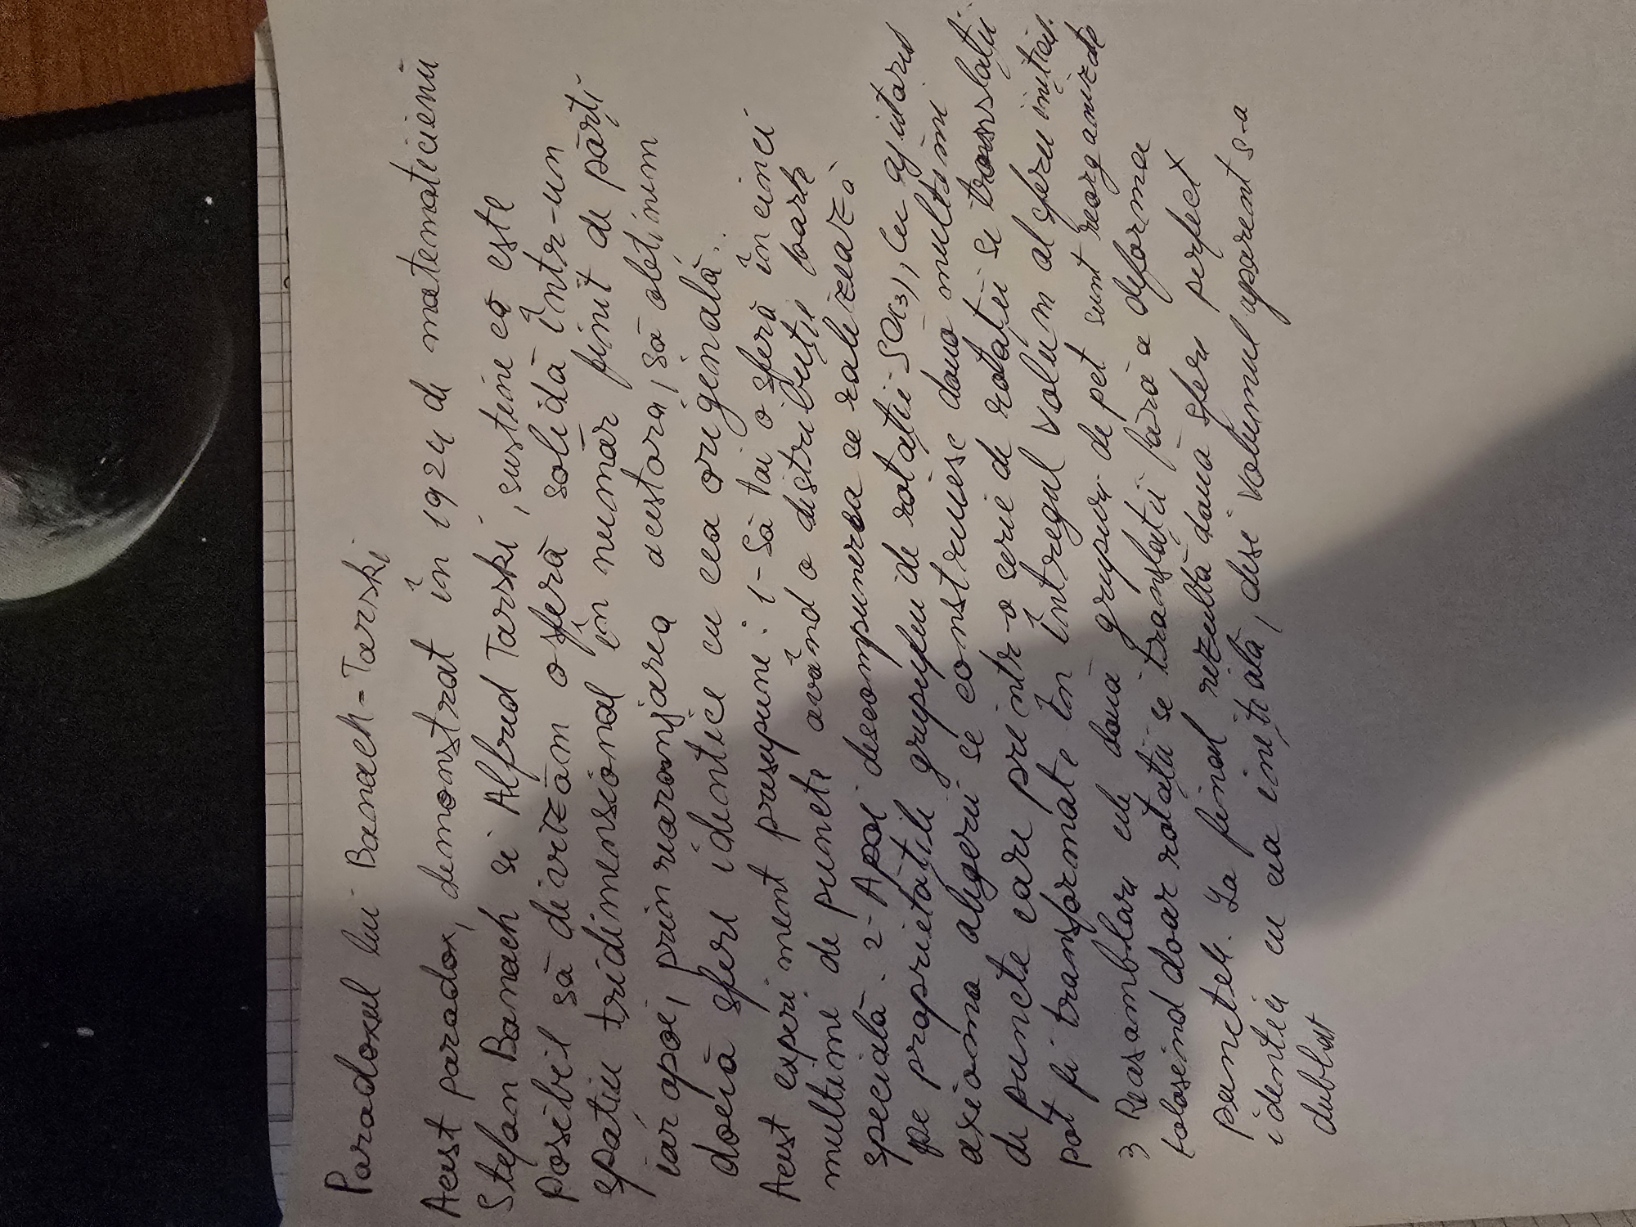 Paradoxul lui Banach-Tarski
Acest paradox, demonstrat în 1924 de matematicienii
Stefan Banach si Alfred Tarski, sustine că este
posibil să divizăm o sferă solidă într-un
spațiu tridimensional în număr finit de părți
iar apoi, prin rearanjarea acestora, să obținem
două sfere identice cu cea originală.
Acest experiment presupune: 1- Să tai o sferă în cinci
multimi de puncte având o distribuție foarte
specială. 2- Apoi descompunerea se ralizează
pe proprietățile grupului de rotație SO(3), Cu ajutorul
axioma alegerii se construiesc două multimi
de puncte care printr-o serie de rotații si translații
pot fi transformate în întregul volum al sferei inițial.
3 Reasamblare cele două grupuri de pct sunt reorganizate
folosind doar rotații si translații fără a deforma
punctele. La final rezultă două sfere perfect
identici cu cea inițială, desi volumul aparent s-a
dublat